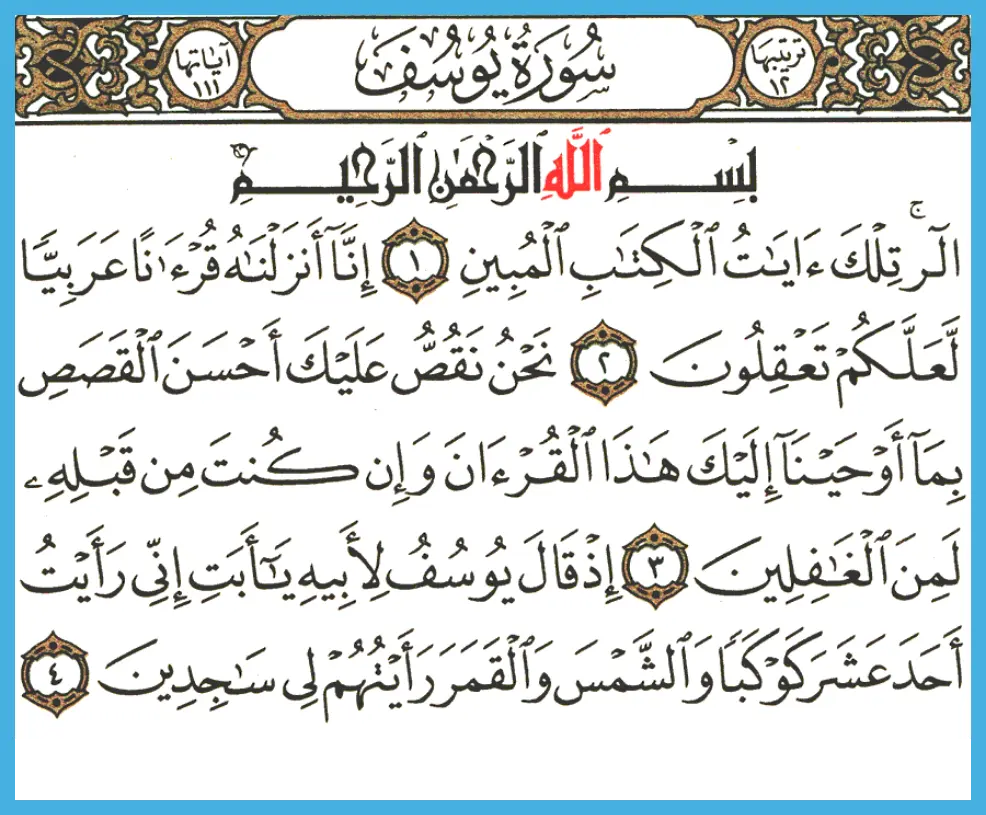 ترتيبها ١٢
سُورَةُ يُوسُفَ
آياتها ١١١
بِسْمِ ٱللَّهِ ٱلرَّحْمَٰنِ ٱلرَّحِيمِ
الٓر ۚ تِلْكَ ءَايَٰتُ ٱلْكِتَٰبِ ٱلْمُبِينِ ١ إِنَّآ أَنزَلْنَٰهُ قُرْءَٰنًا عَرَبِيًّا
لَّعَلَّكُمْ تَعْقِلُونَ ٢ نَحْنُ نَقُصُّ عَلَيْكَ أَحْسَنَ ٱلْقَصَصِ
بِمَآ أَوْحَيْنَآ إِلَيْكَ هَٰذَا ٱلْقُرْءَانَ وَإِن كُنتَ مِن قَبْلِهِۦ
لَمِنَ ٱلْغَٰفِلِينَ ٣ إِذْ قَالَ يُوسُفُ لِأَبِيهِ يَٰٓأَبَتِ إِنِّى رَأَيْتُ
أَحَدَ عَشَرَ كَوْكَبًا وَٱلشَّمْسَ وَٱلْقَمَرَ رَأَيْتُهُمْ لِى سَٰجِدِينَ ٤